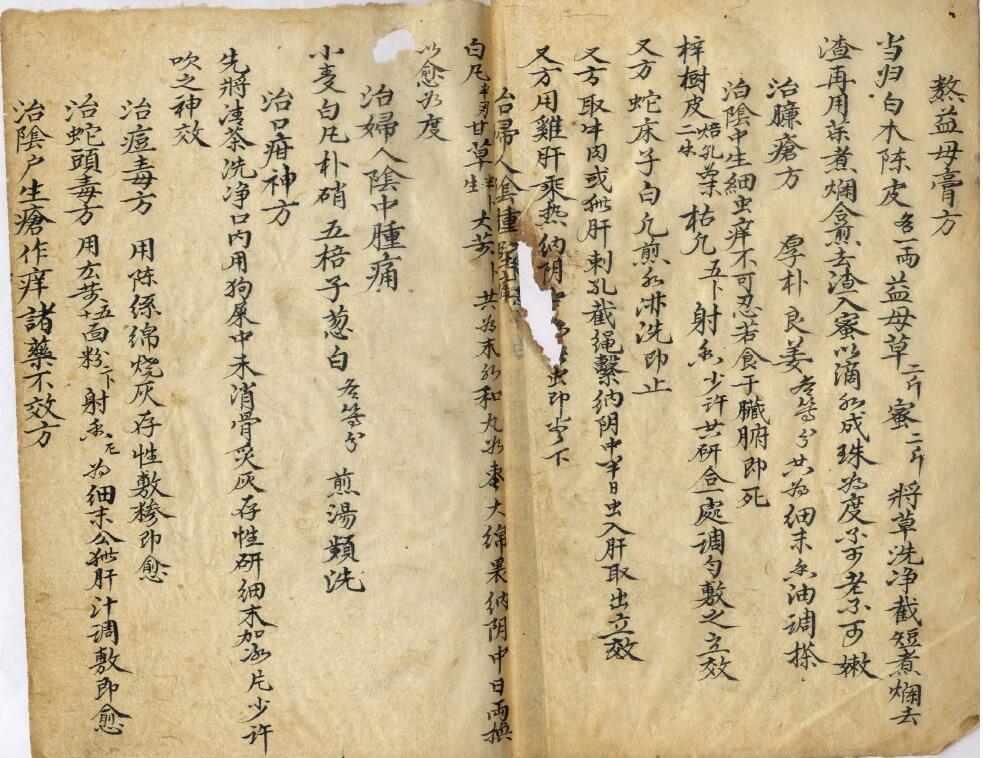 熬益母膏方
当归白木陈皮各一両益母草二斤蜜二斤 將草洗净截短煮爛去
渣再用茶煮爛合煎去渣入蜜以滴水成珠為度不可老不可嫩
治臁瘡方 厚朴良姜各等分共為细末香油调搽
治陰中生細虫痒不可忍若食于臓腑即死
梓樹皮二牛焙乳業枯凢五卜射香少许共研合一處调勻敷之立效
又方 蛇床子白凢煎水淋洗即止
又方取牛肉或猪肝刺孔截绳繫纳阴中半日虫入肝取出立效
又方用雞肝乘热纳阴虫即下
治婦人陰腫
白凢半両甘草生半卜大黄卜共為末水和丸如枣大绵裹纳阴中日両換
以愈為度
治婦人陰中腫痛
小麦白凢朴硝五棓子葱白各等分 煎湯頻洗
治口疳神方
先將清茶洗净口内用狗屎中未消骨炙灰存性研细末加冰片少许
吹之神效
治痘毒方 用陈絲绵烧灰存性敷糁即愈
治蛇頭毒方 用雄黄五卜面粉卜射香為细末公猪肝汁调敷即愈
治陰户生瘡作痒諸藥不效方